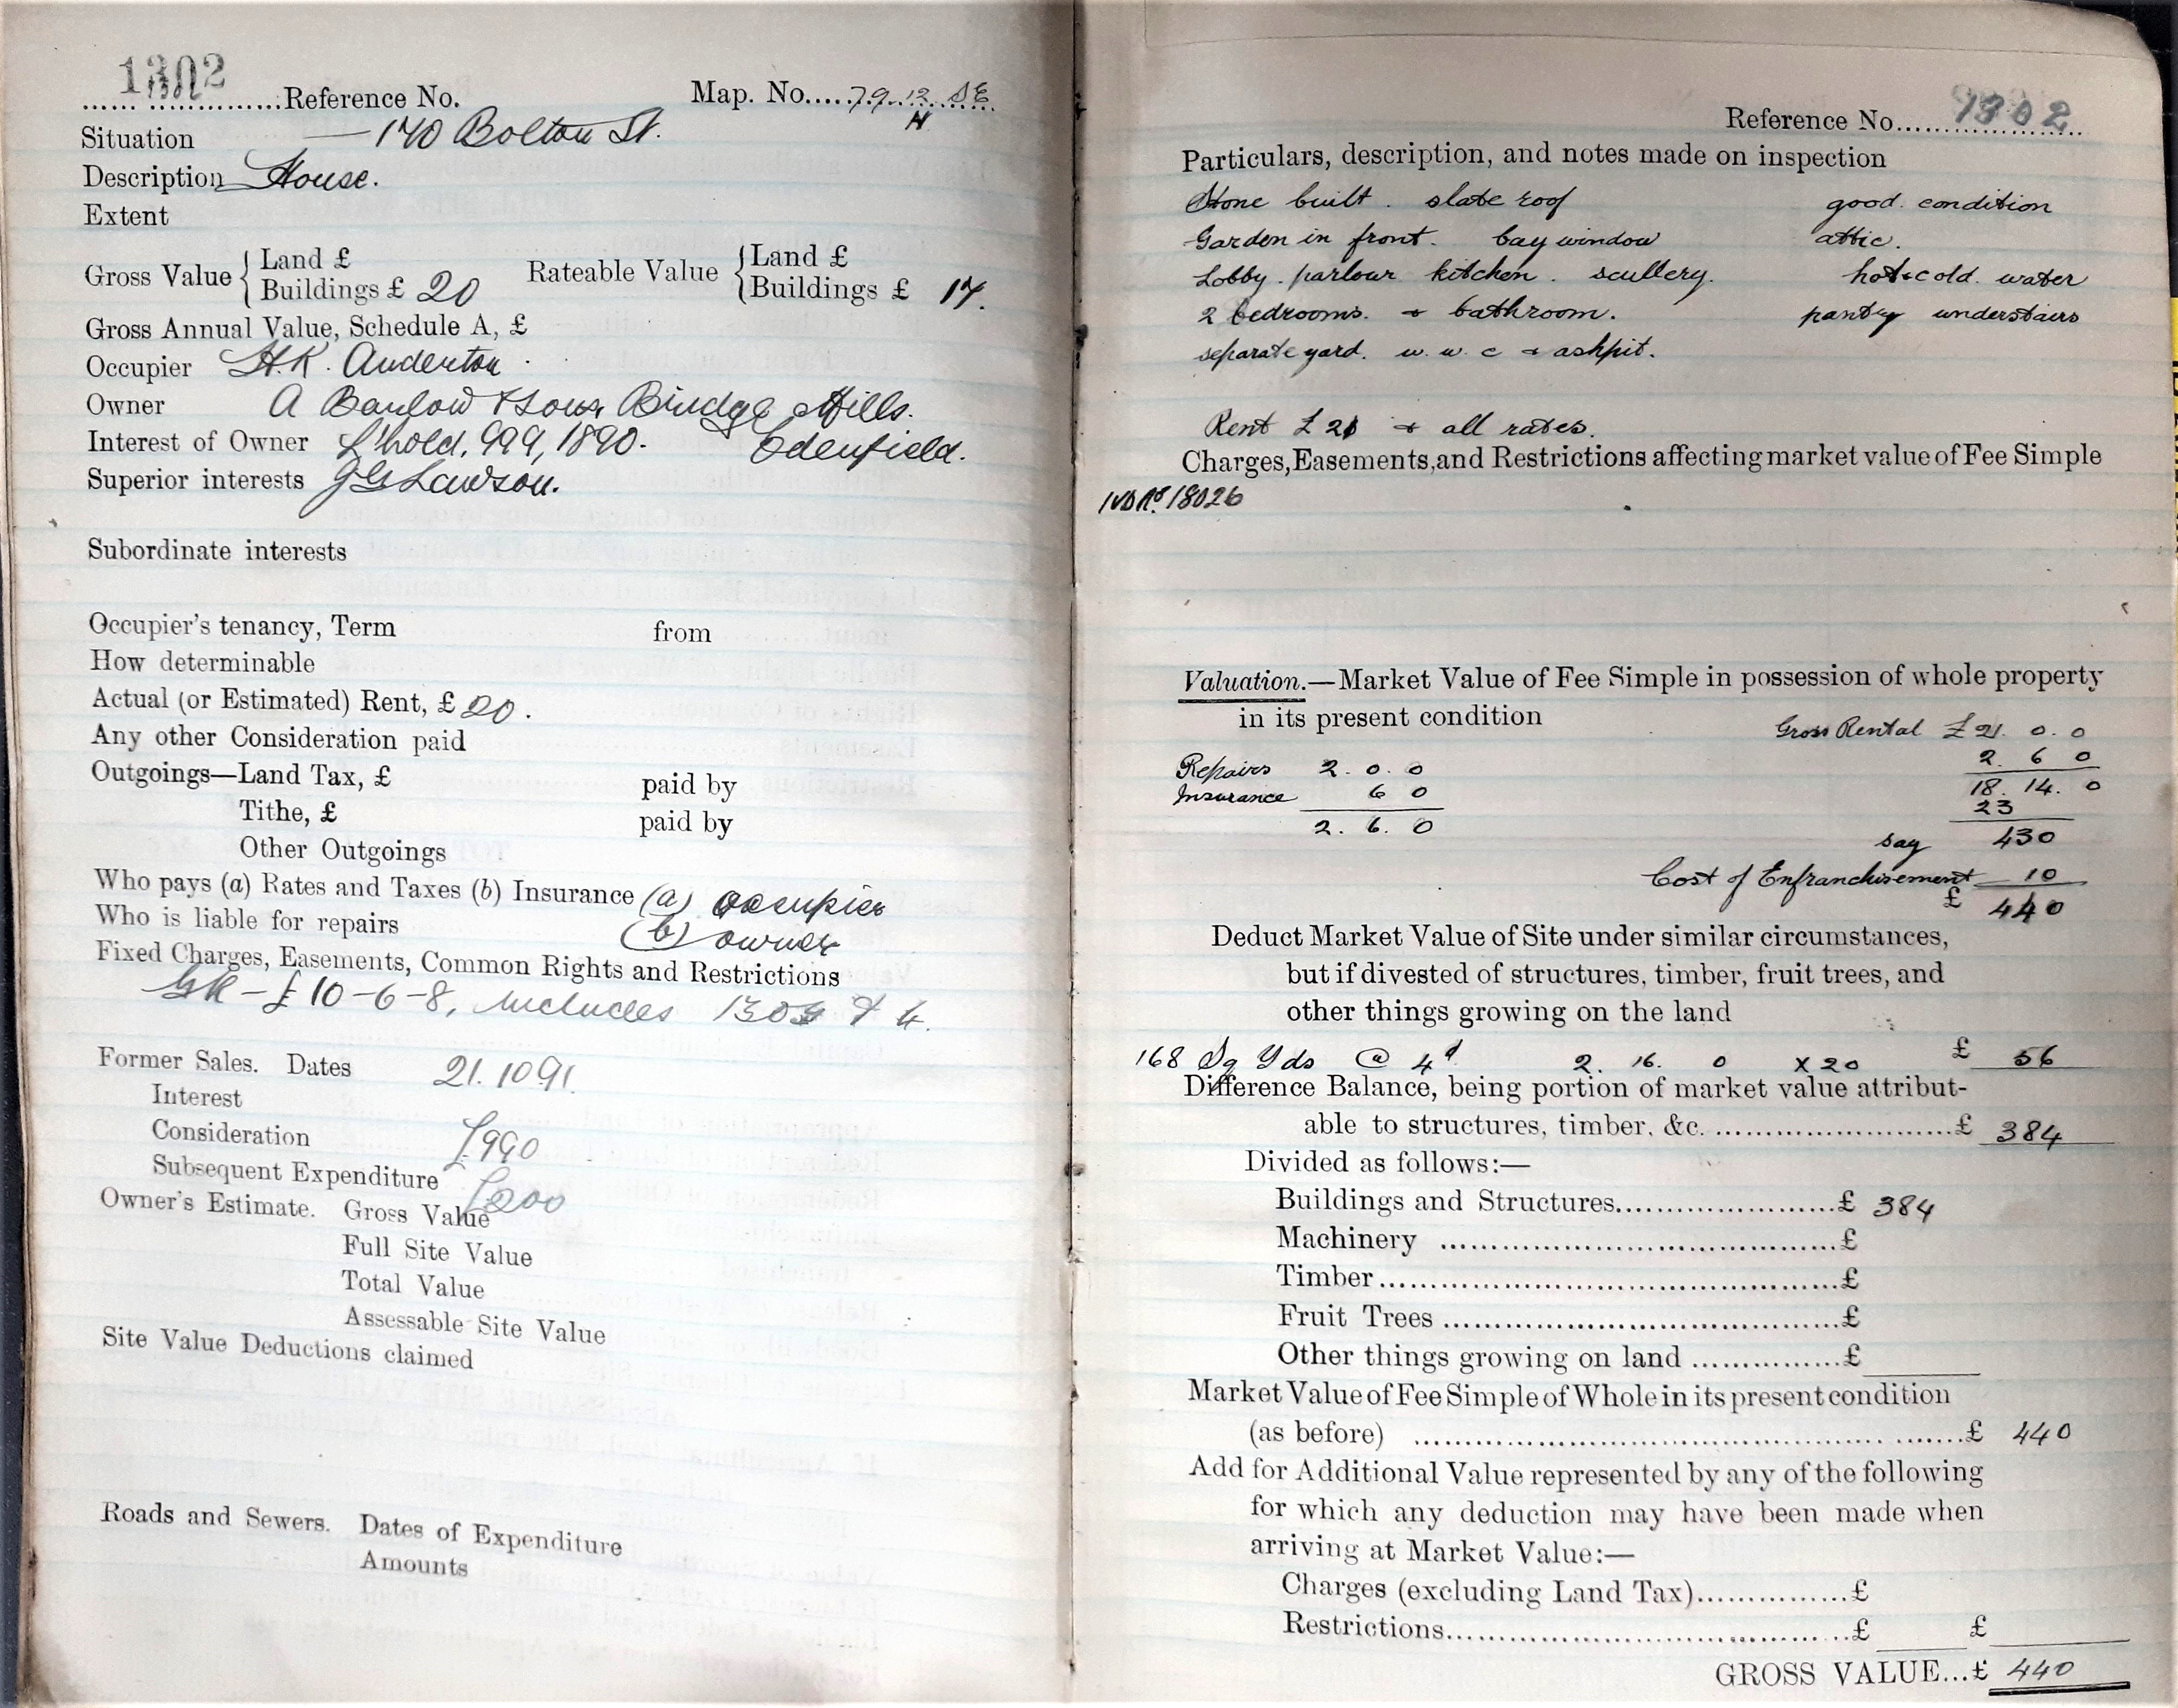 1302
Reference No. Map. No. 79.12 SE
N
Situation — 170 Bolton St.
Description House.
Extent
Gross Value { Land £ Rateable Value { Land £
Buildings £ 20 Buildings £ 17.
Gross Annual Value, Schedule A, £
Occupier H.K. Anderton
Owner A Barlow & Sons, Bridge Mills.
Interest of Owner L'hold, 999, 1890. Edenfield.
Superior interests J G Lawson.
Subordinate interests
Occupier's tenancy, Term from
How determinable
Actual (or Estimated) Rent, £ 20.
Any other Consideration paid
Outgoings—Land Tax, £ paid by
Tithe, £ paid by
Other Outgoings
Who pays (a) Rates and Taxes (b) Insurance (a) occupier
Who is liable for repairs (b) owner
Fixed Charges, Easements, Common Rights and Restrictions
GR - £10-6-8, includes 1303 & 4.
Former Sales. Dates 21.10.91.
Interest
Consideration £990
Subsequent Expenditure £200
Owner's Estimate. Gross Value
Full Site Value
Total Value
Assessable Site Value
Site Value Deductions claimed
Roads and Sewers. Dates of Expenditure
Amounts
Reference No. 1302
Particulars, description, and notes made on inspection
Stone built. slate roof good condition
Garden in front. bay window attic.
Lobby. parlour kitchen. scullery. hot & cold water
2 bedrooms. & bathroom. pantry understairs
separate yard. w. w. c & ashpit.
Rent £21 & all rates.
Charges, Easements, and Restrictions affecting market value of Fee Simple
IVD No. 18026
Valuation.—Market Value of Fee Simple in possession of whole property
in its present condition
Gross Rental £21. 0. 0
Repairs 2. 0. 0 2. 6 0
Insurance 6 0 18. 14. 0
23
2. 6. 0
say 430
Cost of Enfranchisement 10
£ 440
Deduct Market Value of Site under similar circumstances,
but if divested of structures, timber, fruit trees, and
other things growing on the land
168 Sq Yds @ 4d 2. 16. 0 x 20 £ 56
Difference Balance, being portion of market value attribut-
able to structures, timber, &c. £ 384
Divided as follows:—
Buildings and Structures £ 384
Machinery £
Timber £
Fruit Trees £
Other things growing on land £
Market Value of Fee Simple of Whole in its present condition
(as before) £ 440
Add for Additional Value represented by any of the following
for which any deduction may have been made when
arriving at Market Value:—
Charges (excluding Land Tax) £
Restrictions £ £
GROSS VALUE...£ 440